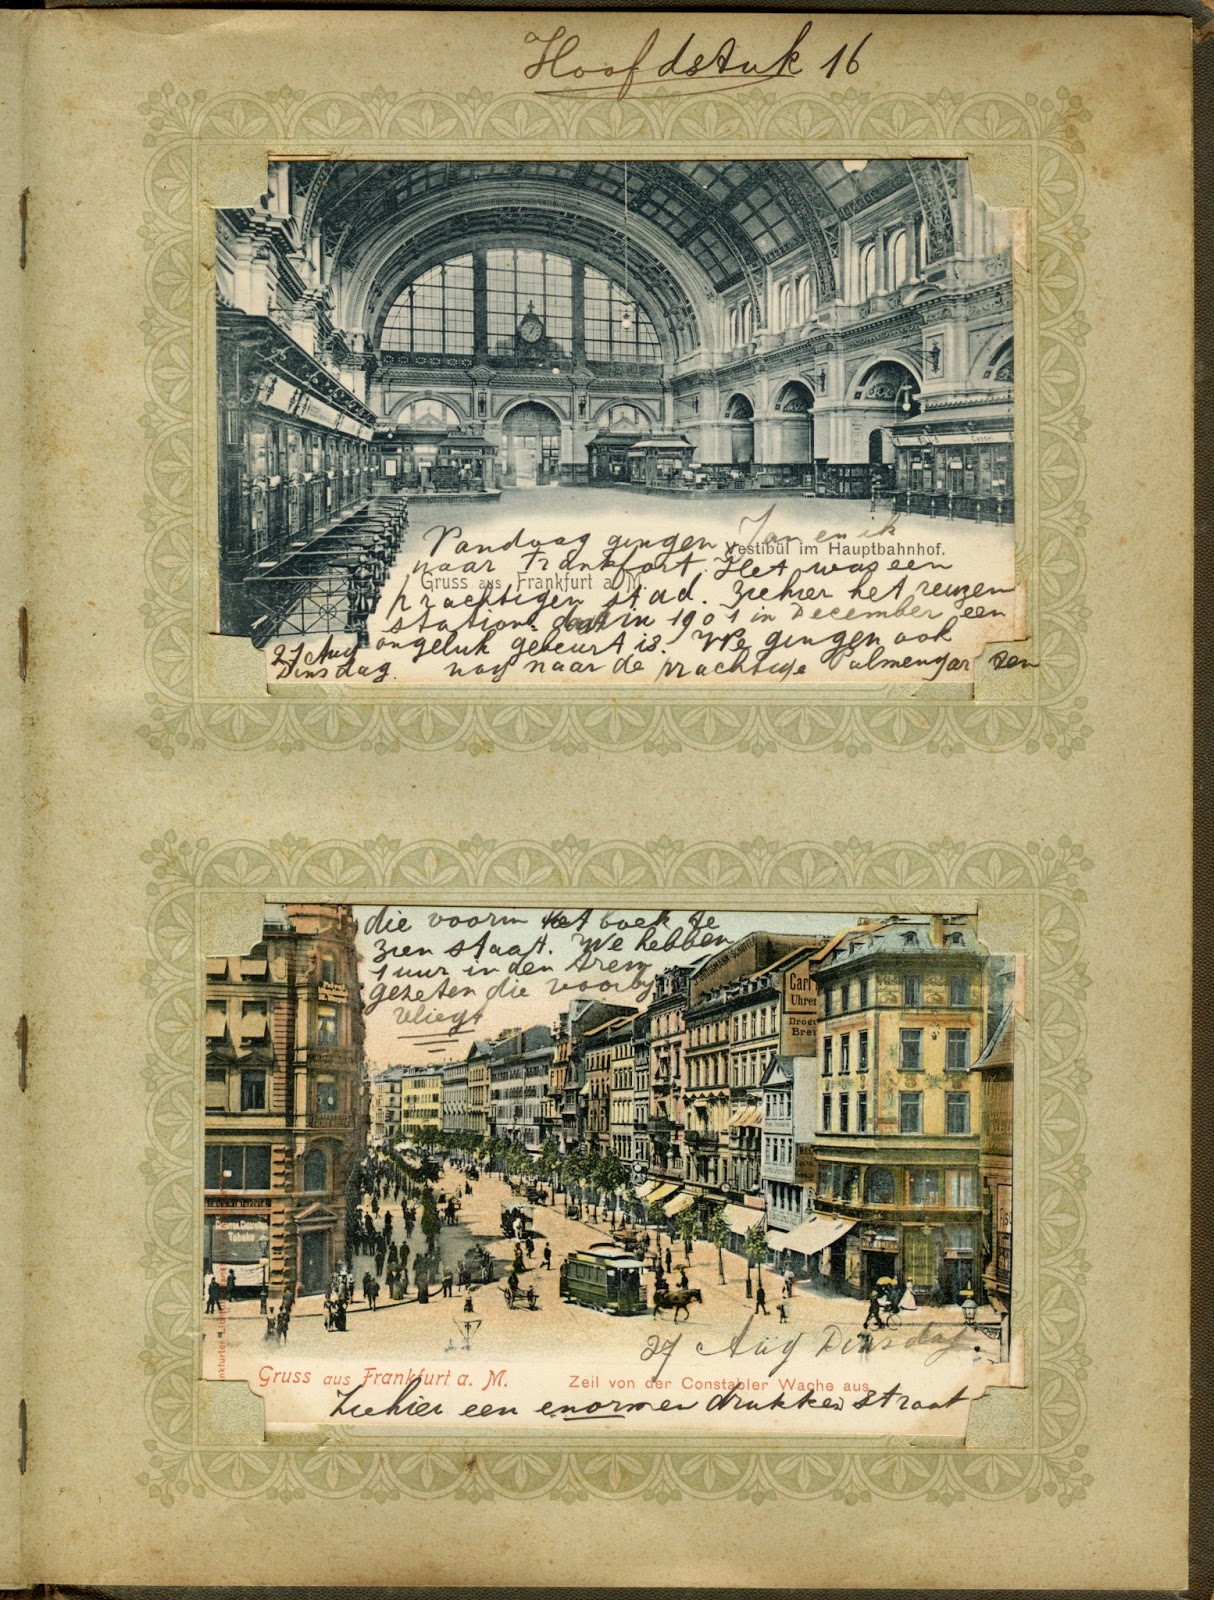 Hoofdstuk 16
Vandaag gingen Jan en ik
Vestibül im Hauptbahnhof.
naar Frankfort. Het was een
Gruss aus Frankfurt a. M.
prachtigen stad. Ziehier het reuzen
station dat in 1901 in December een
ongeluk gebeurt is. We gingen ook
27 Aug
Dinsdag. nog naar de prachtige Palmengarten
Cassel
die voorin het boek te
zien staat. We hebben
1 uur in den trein
gezeten die voorbij
vliegt
Carl
Uhren
Tabake
27 Aug Dinsdag.
Gruss aus Frankfurt a. M.
Zeil von der Constabler Wache aus
Ziehier een enormen drukken straat